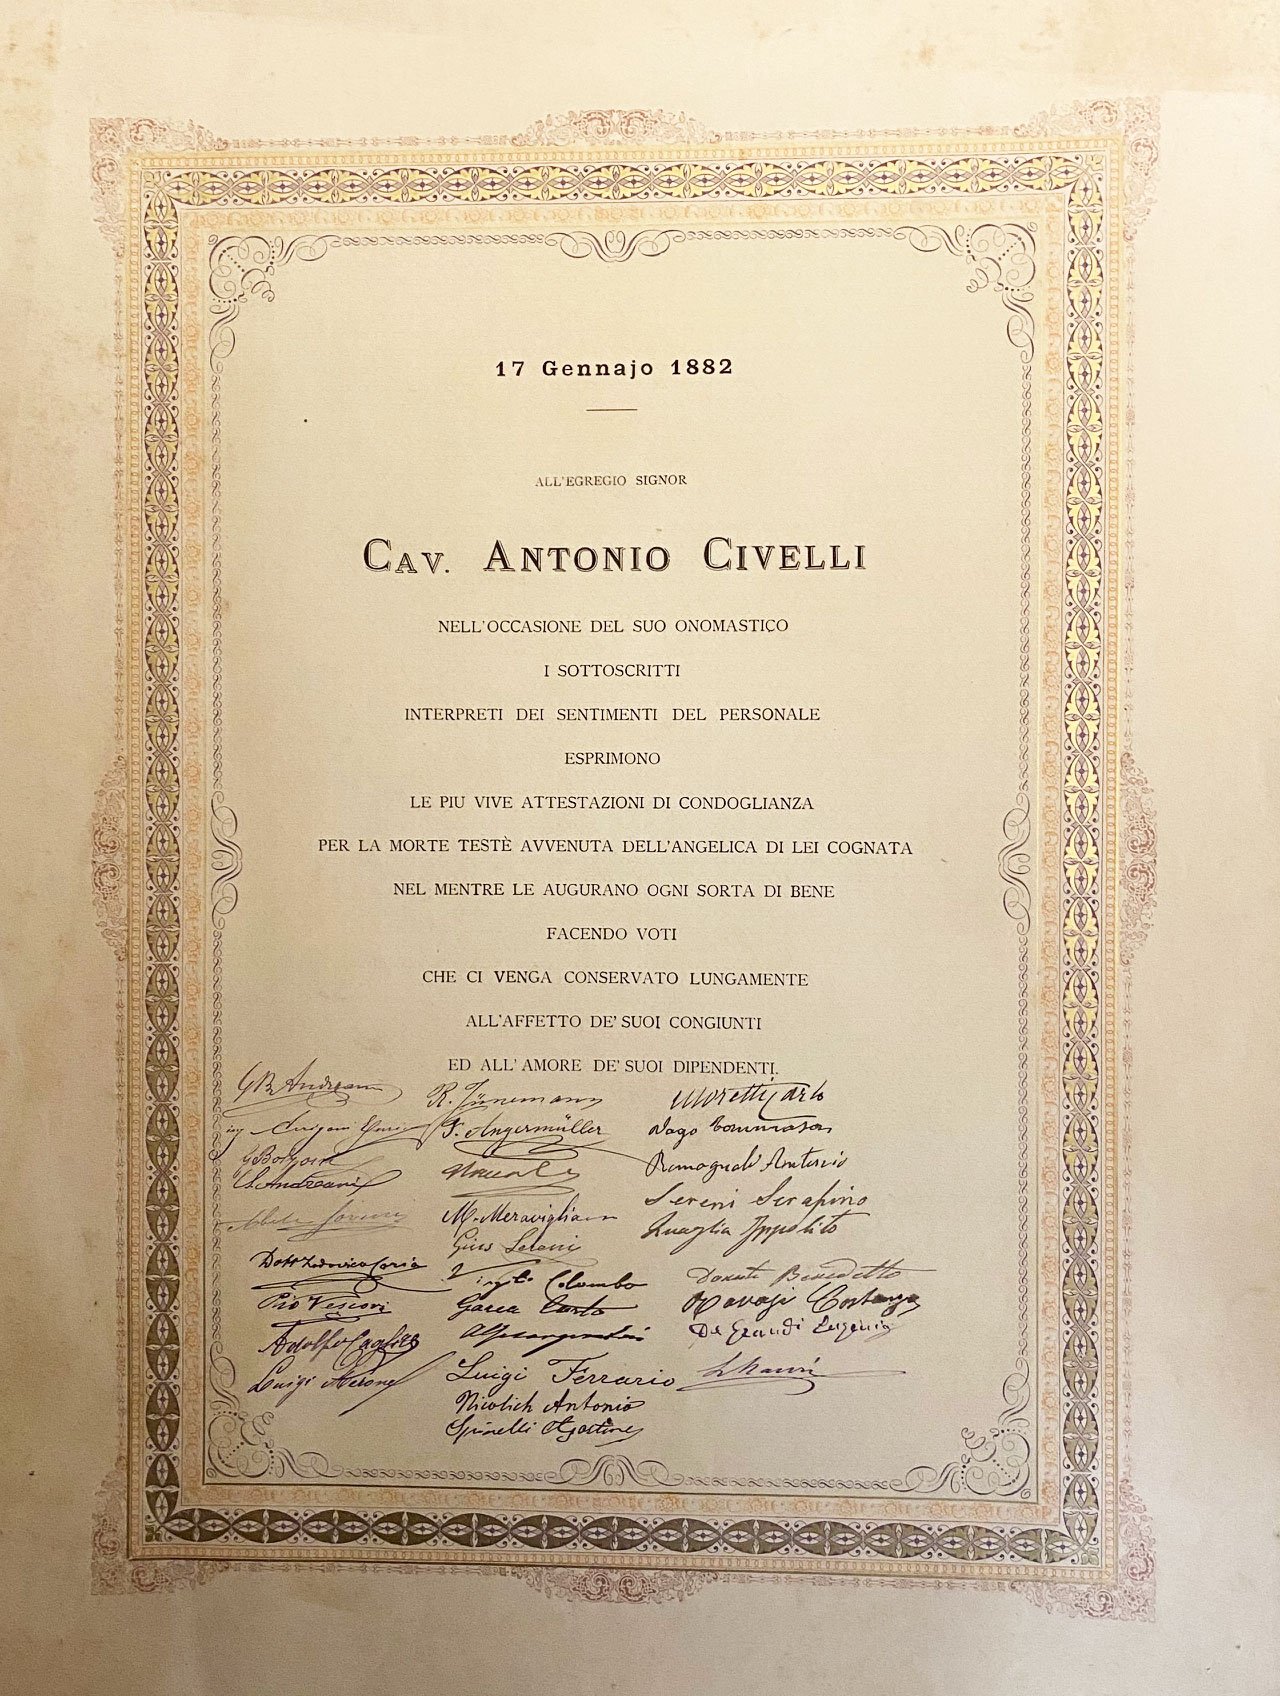 17 Gennajo 1882
ALL'EGREGIO SIGNOR
CAV. ANTONIO CIVELLI
NELL'OCCASIONE DEL SUO ONOMASTICO
I SOTTOSCRITTI
INTERPRETI DEI SENTIMENTI DEL PERSONALE
ESPRIMONO
LE PIU VIVE ATTESTAZIONI DI CONDOGLIANZA
PER LA MORTE TESTÈ AVVENUTA DELL'ANGELICA DI LEI COGNATA
NEL MENTRE LE AUGURANO OGNI SORTA DI BENE
FACENDO VOTI
CHE CI VENGA CONSERVATO LUNGAMENTE
ALL'AFFETTO DE' SUOI CONGIUNTI
ED ALL'AMORE DE' SUOI DIPENDENTI.
G B Andreani
ing
Andreani
Dott Lodovico Coria
Pio Vesconi
Adolfo
Luigi Nerone
R. Jünemann
F. Angermüller
M. Meraviglia
Gius Sereni
Colombo
Garea Carlo
Luigi Ferrario
Nicolich Antonio
Spinelli Agostino
Moretti Carlo
Dago Tommaso
Romagnoli Antonio
Sereni Serafino
Quaglia Ippolito
Donati Benedetto
Ravasi Costanza
De Grandi Eugenio